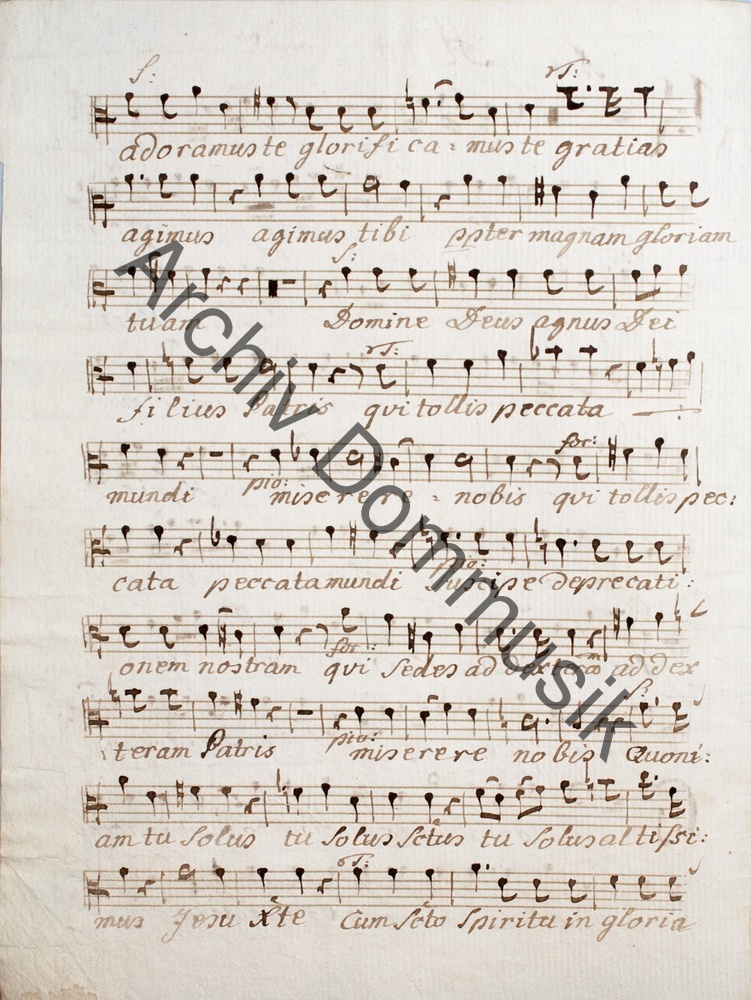 S: T:
adoramus te glorifi ca = mus te gratias
agimus agimus tibi ppter magnam gloriam
S:
tuam Domine Deus agnus Dei
T:
filius Patris qui tollis peccata
for:
pio:
mundi miserere = nobis qui tollis pec:
pio:
cata peccata mundi Suscipe deprecati:
for:
onem nostram qui sedes ad dexteram ad dex
S:
pio:
teram Patris miserere nobis Quoni:
am tu solus tu solus sctus tu solus altissi:
T:
mus Jesu Xte Cum scto spiritu in gloria
Archiv Dommusik